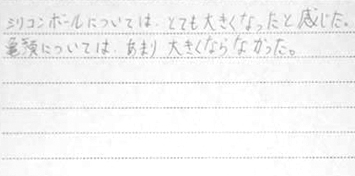 シリコンボールについては、とても大きくなったと感じた。
亀頭については、あまり大きくならなかった。